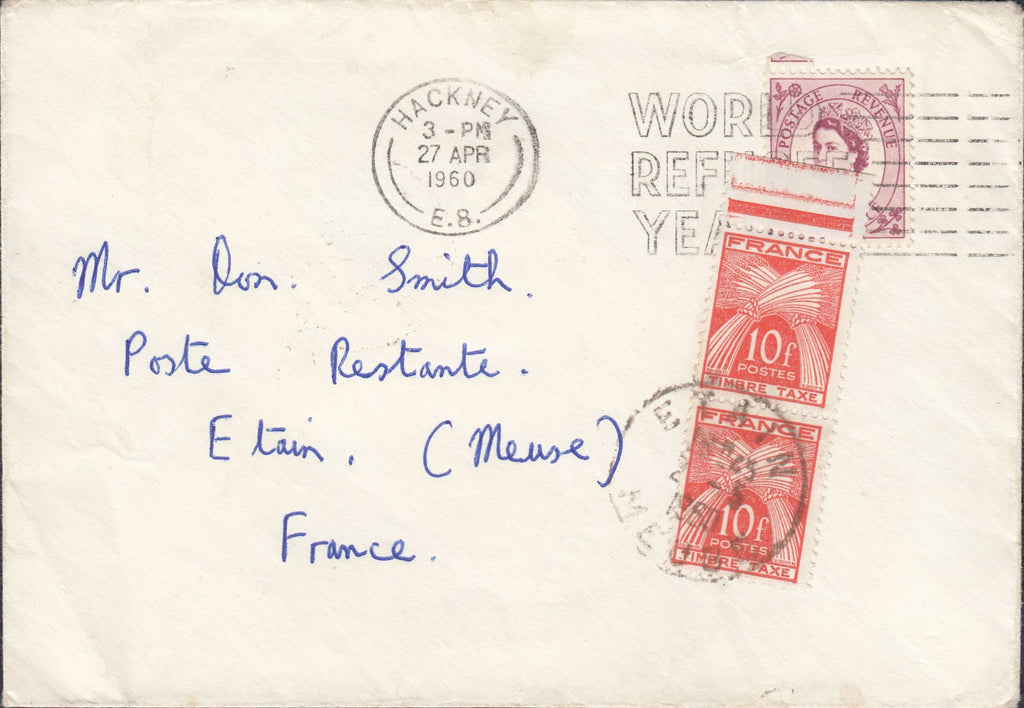 HACKNEY
3 - PM
27 APR
1960
E.8.
WORL
REF
YEA
POSTAGE REVENUE
Mr. Don. Smith.
Poste Restante.
Etain. (Meuse)
France.
FRANCE
10f
POSTES
TIMBRE TAXE
FRANCE
10f
POSTES
TIMBRE TAXE
ETAIN
1960
MEUSE